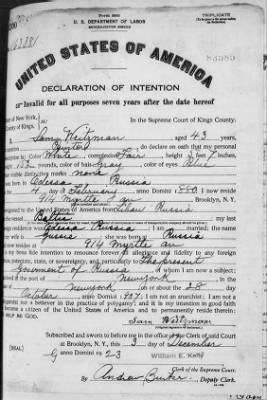 TRIPLICATE
U. S. DEPARTMENT OF LABOR
NATURALIZATION SERVICE
UNITED STATES OF AMERICA
DECLARATION OF INTENTION
Invalid for all purposes seven years after the date hereof
State of New York,
County of Kings,
In the Supreme Court of Kings County:
Sam Weitzman aged 43 years,
occupation Painter, do declare on oath that my personal
description is: Color White, complexion Fair, height 5 feet 7 inches,
color of hair Gray, color of eyes Blue
visible distinctive marks none
Odessa Russia
4 day of February anno Domini 1880; I now reside
914 Myrtle av Brooklyn, N. Y.
United States of America from Libau Russia
Baltic; my last
Odessa Russia; I am married;
Gussie; she was born Russia
now resides at 914 Myrtle av
my bona fide intention to renounce forever all allegiance and fidelity to any foreign
prince, potentate, state, or sovereignty, and particularly to The present
Government of Russia of whom I am now a subject;
port of New York
New York on or about the 28 day
October anno Domini; I am not an anarchist; I am not a
polygamist nor a believer in the practice of polygamy; and it is my intention in good faith
to become a citizen of the United States of America and to permanently reside therein:
HELP ME GOD.
Sam Weitzman
Subscribed and sworn to before me in the office of the Clerk of said Court
at Brooklyn, N. Y., this 3 day of December
anno Domini 23
[SEAL]
William E. Kelly
Clerk of the Supreme Court.
By Deputy Clerk.